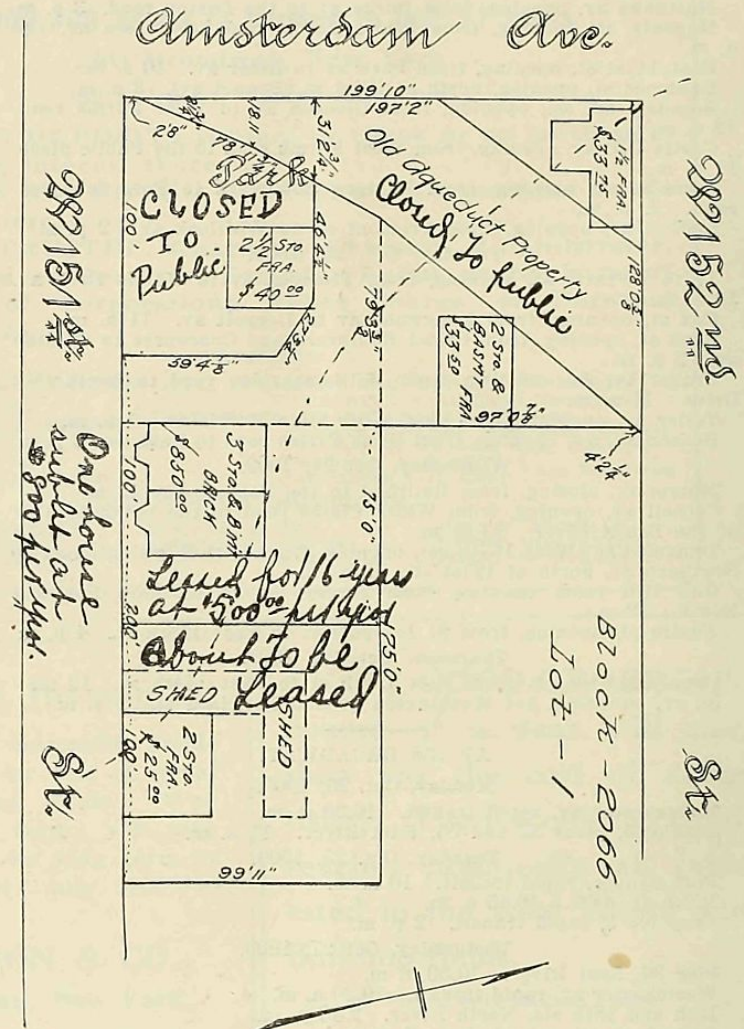 Amsterdam Ave.
199'10"
197'2"
2'8"
18.11
31'2 3/4"
78'11 3/4"
Park
CLOSED
TO
Public
100'
2 1/2 STO
FRA.
$40 00
46'4 1/2"
59'4 1/8"
Old Aqueduct Property
Closed to public
1 1/2 FRA.
$33 75
128'0 5/8"
79'3 3/8"
2 STO. &
BASMT FRA.
$33 50
97'0 7/8"
4'2 1/4"
W 151 st.
St.
W 152 nd.
St.
One house
sublet at
$800 per year.
100'
3 Sto & Bmt
BRCK
$850 00
75'0"
Leased for 16 years
at $500 00 per year
200'
About to be
Leased
75'0"
SHED
SHED
2 STO.
FRA.
$25 00
100'
99'11"
Block - 2066
Lot - 1